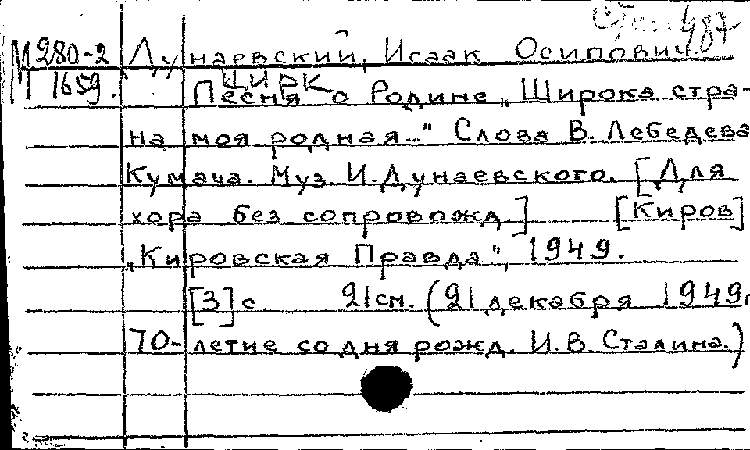 487
М 280-2 Дунаевский, Исаак Осипович.
М 1659. ЦИРК
Песня о Родине „Широка стра-
на моя родная..." Слова В. Лебедева
Кумача. Муз. И. Дунаевского. [Для
хора без сопровожд] [Киров]
„Кировская Правда", 1949.
[3] с 21см. (21 декабря 1949г
70-летие со дня рожд. И. В. Сталина.)